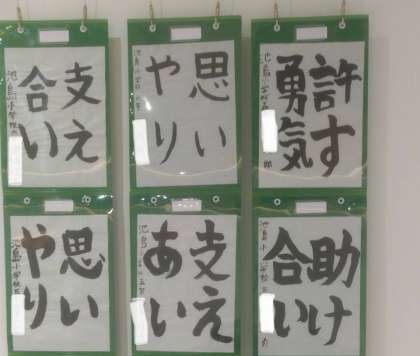 支え
合い
池島小学校
思い
やり
池島小学校
許す
勇気
池島小学校
郎
思い
やり
池島小学校
支え
あい
池島
助け
合い
池島小学校